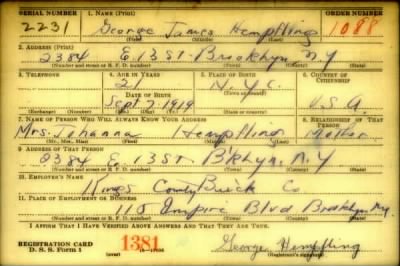 SERIAL NUMBER 1. NAME (Print) ORDER NUMBER
2231 George James Hempfling 1088
(First) (Middle) (Last)
2. ADDRESS (Print)
2384 E 13 St. Brooklyn N.Y
(Number and street or R. F. D. number) (Town) (County) (State)
3. TELEPHONE 4. AGE IN YEARS 5. PLACE OF BIRTH 6. COUNTRY OF CITIZENSHIP
21 N.Y.C.
DATE OF BIRTH (Town or county)
Sept 7. 1919 U.S.A.
(Exchange) (Number) (Mo.) (Day) (Yr.) (State or country)
7. NAME OF PERSON WHO WILL ALWAYS KNOW YOUR ADDRESS 8. RELATIONSHIP OF THAT PERSON
Mrs. Johanna Hempfling Mother
(Mr., Mrs., Miss) (First) (Middle) (Last)
9. ADDRESS OF THAT PERSON
2384 E. 13 St. B'klyn. N.Y
(Number and street or R. F. D. number) (Town) (County) (State)
10. EMPLOYER'S NAME
Kings County Buick Co.
11. PLACE OF EMPLOYMENT OR BUSINESS
115 Empire Blvd Brooklyn N.Y.
(Number and street or R. F. D. number) (Town) (County) (State)
I AFFIRM THAT I HAVE VERIFIED ABOVE ANSWERS AND THAT THEY ARE TRUE.
REGISTRATION CARD 1381 George Hempfling
D. S. S. Form 1 (Registrant's signature)